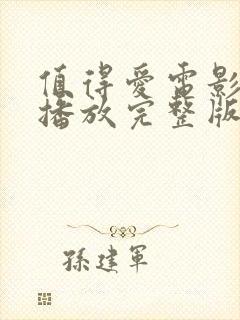 值得愛電影
播放完整版
孫建軍